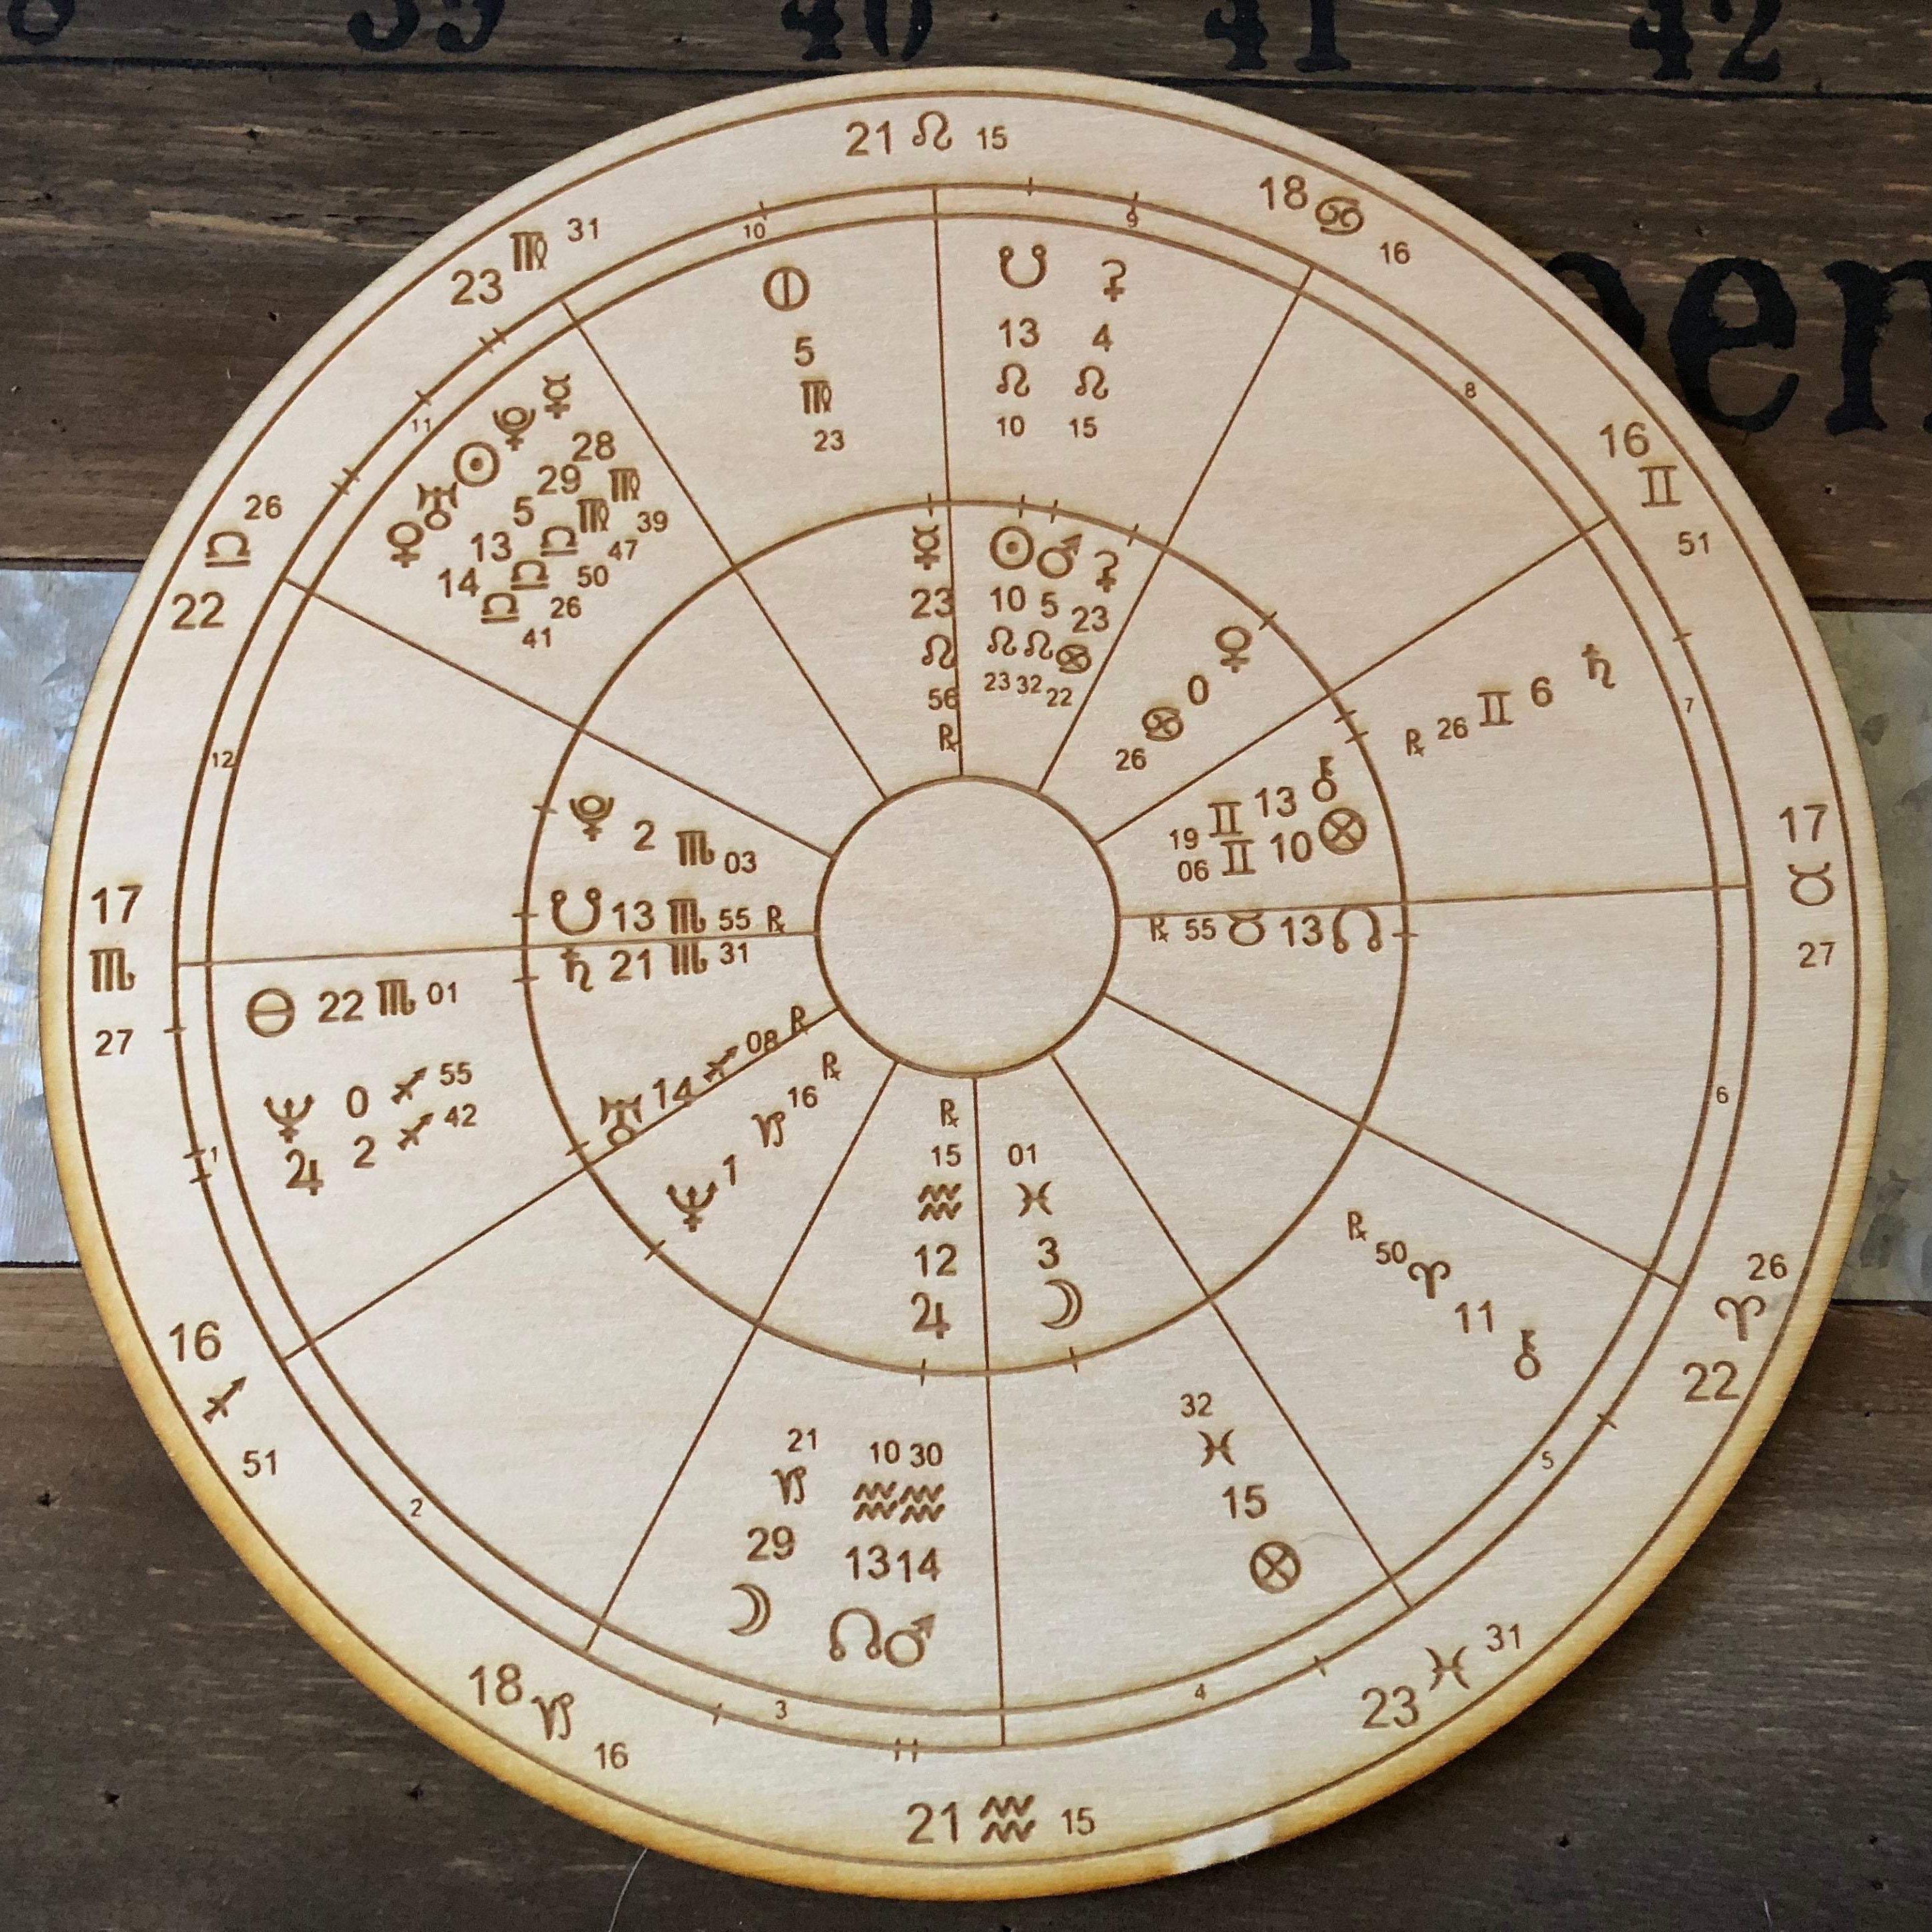 39 40 41 42
een
21 ♌ 15
18 ♋ 16
16 ♊ 51
17 ♉ 27
26 ♈ 22
23 ♓ 31
21 ♒ 15
18 ♑ 16
16 ♐ 51
17 ♏ 27
22 ♎ 26
23 ♍ 31
10
9
8
7
6
5
4
3
2
1
12
11
⦶ 5 ♍ 23
☋ 13 ♌ 10
⚳ 4 ♌ 15
♄ 6 ♊ 26 ℞
⚷ 11 ♈ 50 ℞
⊗ 15 ♓ 32
♂ 14 ♒ 30
☊ 13 ♒ 10
☽ 29 ♑ 21
♃ 2 ♐ 42
♆ 0 ♐ 55
⊖ 22 ♏ 01
♀ 14 ♎ 41
♅ 13 ♎ 26
☉ 5 ♎ 50
♇ 29 ♍ 47
☿ 28 ♍ 39
☿ 23 ♌ 56 ℞
☉ 10 ♌ 23
♂ 5 ♌ 32
⚳ 23 ♋ 22
♀ 0 ♋ 26
⚷ 13 ♊ 19
⊗ 10 ♊ 06
☊ 13 ♉ 55 ℞
☽ 3 ♓ 01
♃ 12 ♒ 15 ℞
♆ 1 ♑ 16 ℞
♅ 14 ♐ 08 ℞
♄ 21 ♏ 31
☋ 13 ♏ 55 ℞
♇ 2 ♏ 03